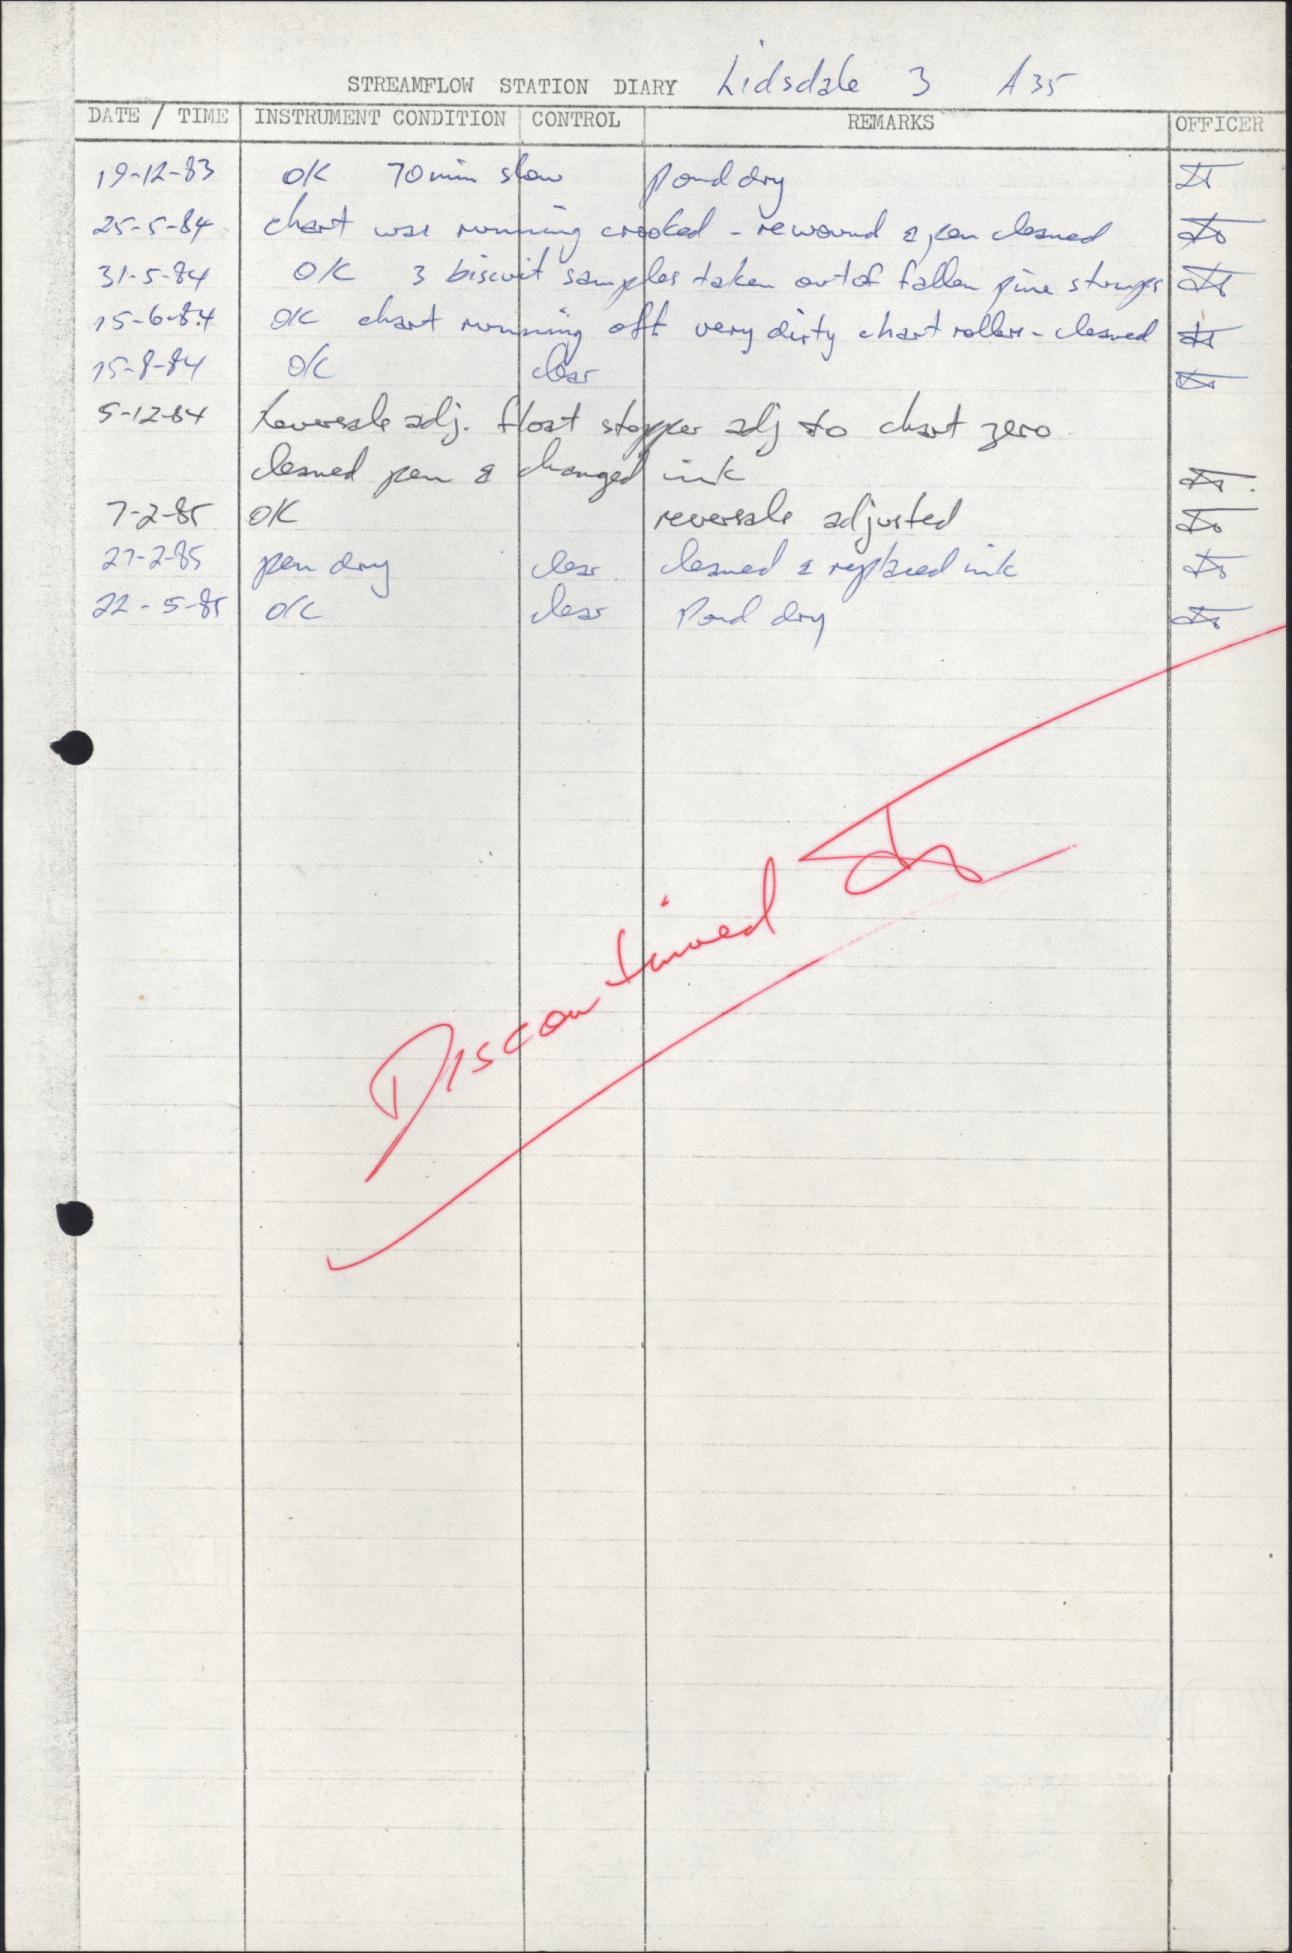 STREAMFLOW STATION DIARY Lidsdale 3 A35
DATE / TIME INSTRUMENT CONDITION CONTROL REMARKS OFFICER
19-12-83 OK 70 min slow pond dry
25-5-84 chart was running crooked - rewound & pen cleaned
31-5-84 OK 3 biscuit samples taken out of fallen pine stumps
15-6-84 OK chart running off very dirty chart rollers - cleaned
15-8-84 OK clear
5-12-84 Reversale adj. float stopper adj to chart zero
cleaned pen & changed ink
7-2-85 OK reversale adjusted
27-2-85 pen dry clear cleaned & replaced ink
22-5-85 OK clear Pond dry
Discontinued